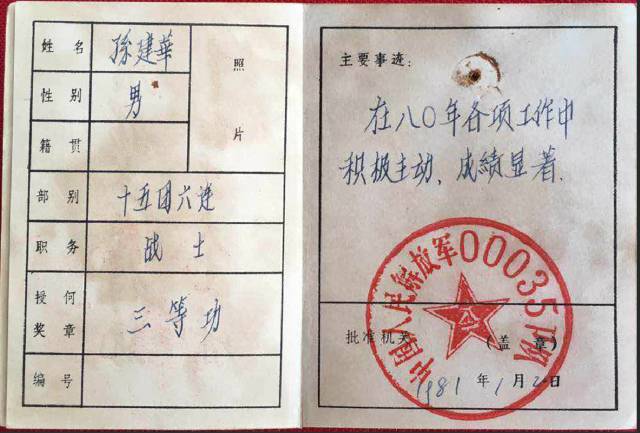 姓名 孙建華
照
性别 男
籍贯
片
部别 十五团六连
职务 战士
授何奖章 三等功
编号
主要事迹:
在八〇年各项工作中
积极主动、成绩显著.
中国人民解放军00035部队
批准机关 (盖章)
1981年1月2日